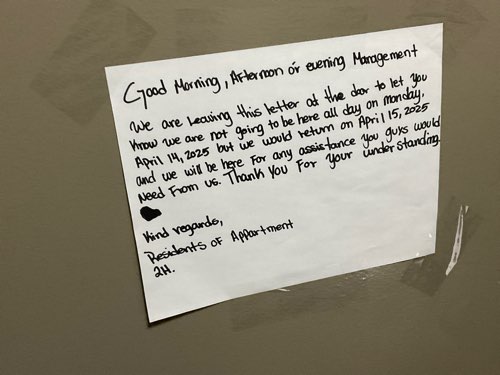 Good Morning, Afternoon or evening Management
We are Leaving this letter at the door to let you
know we are not going to be here all day on monday,
April 14, 2025 but we would return on April 15, 2025
and we will be here for any assistance you guys would
need From us. Thank You For Your understanding.
Kind regards,
Residents of Appartment
2H.